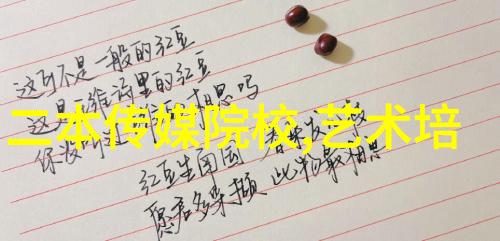 这可不是一般的红豆
这是维诗里的红豆
你没听过 相思吗
二本传媒院校,艺术培
红豆生南国 春来发 枝
愿君多采撷 此物最相思